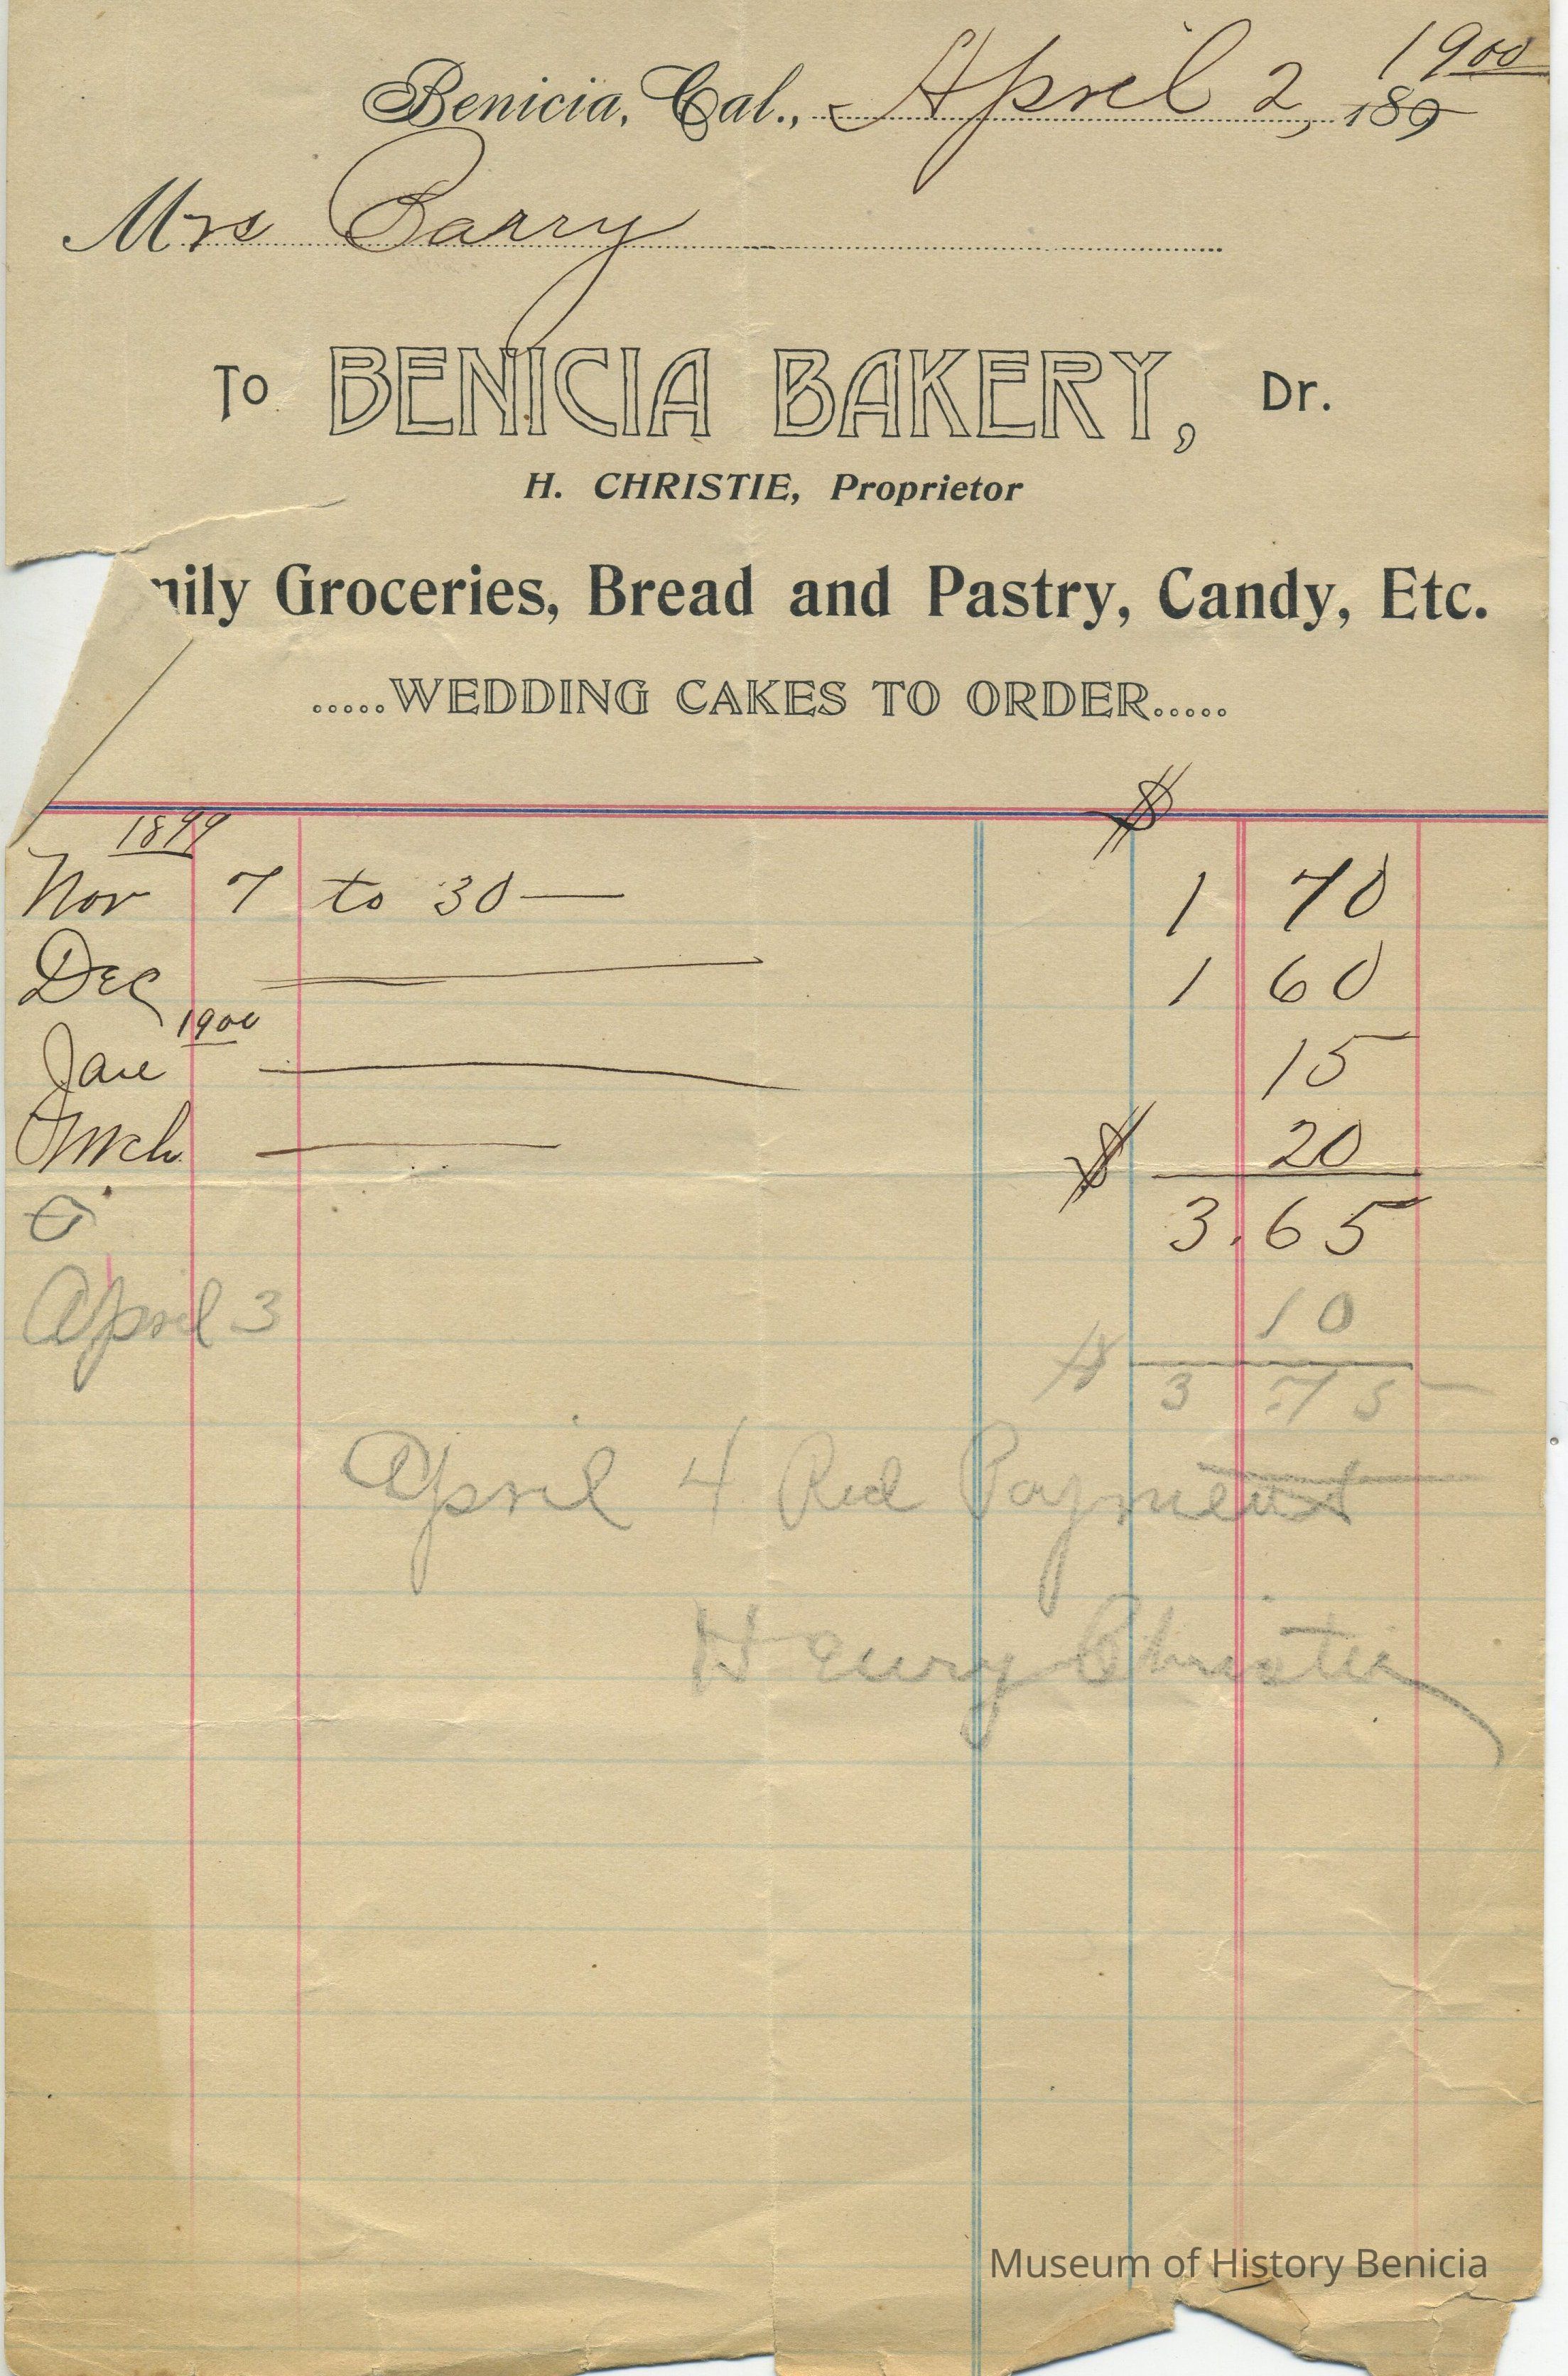 1900
Benicia, Cal., April 2, 189
Mrs Barry
To BENICIA BAKERY, Dr.
H. CHRISTIE, Proprietor
mily Groceries, Bread and Pastry, Candy, Etc.
.....WEDDING CAKES TO ORDER.....
$
1899
Nov 7 to 30 — 1 70
Dec — 1 60
1900
Jan — 15
Mch — 20
$ 3.65
April 3 10
$ 3 75
April 4 Rcd Payment
Henry Christie
Museum of History Benicia